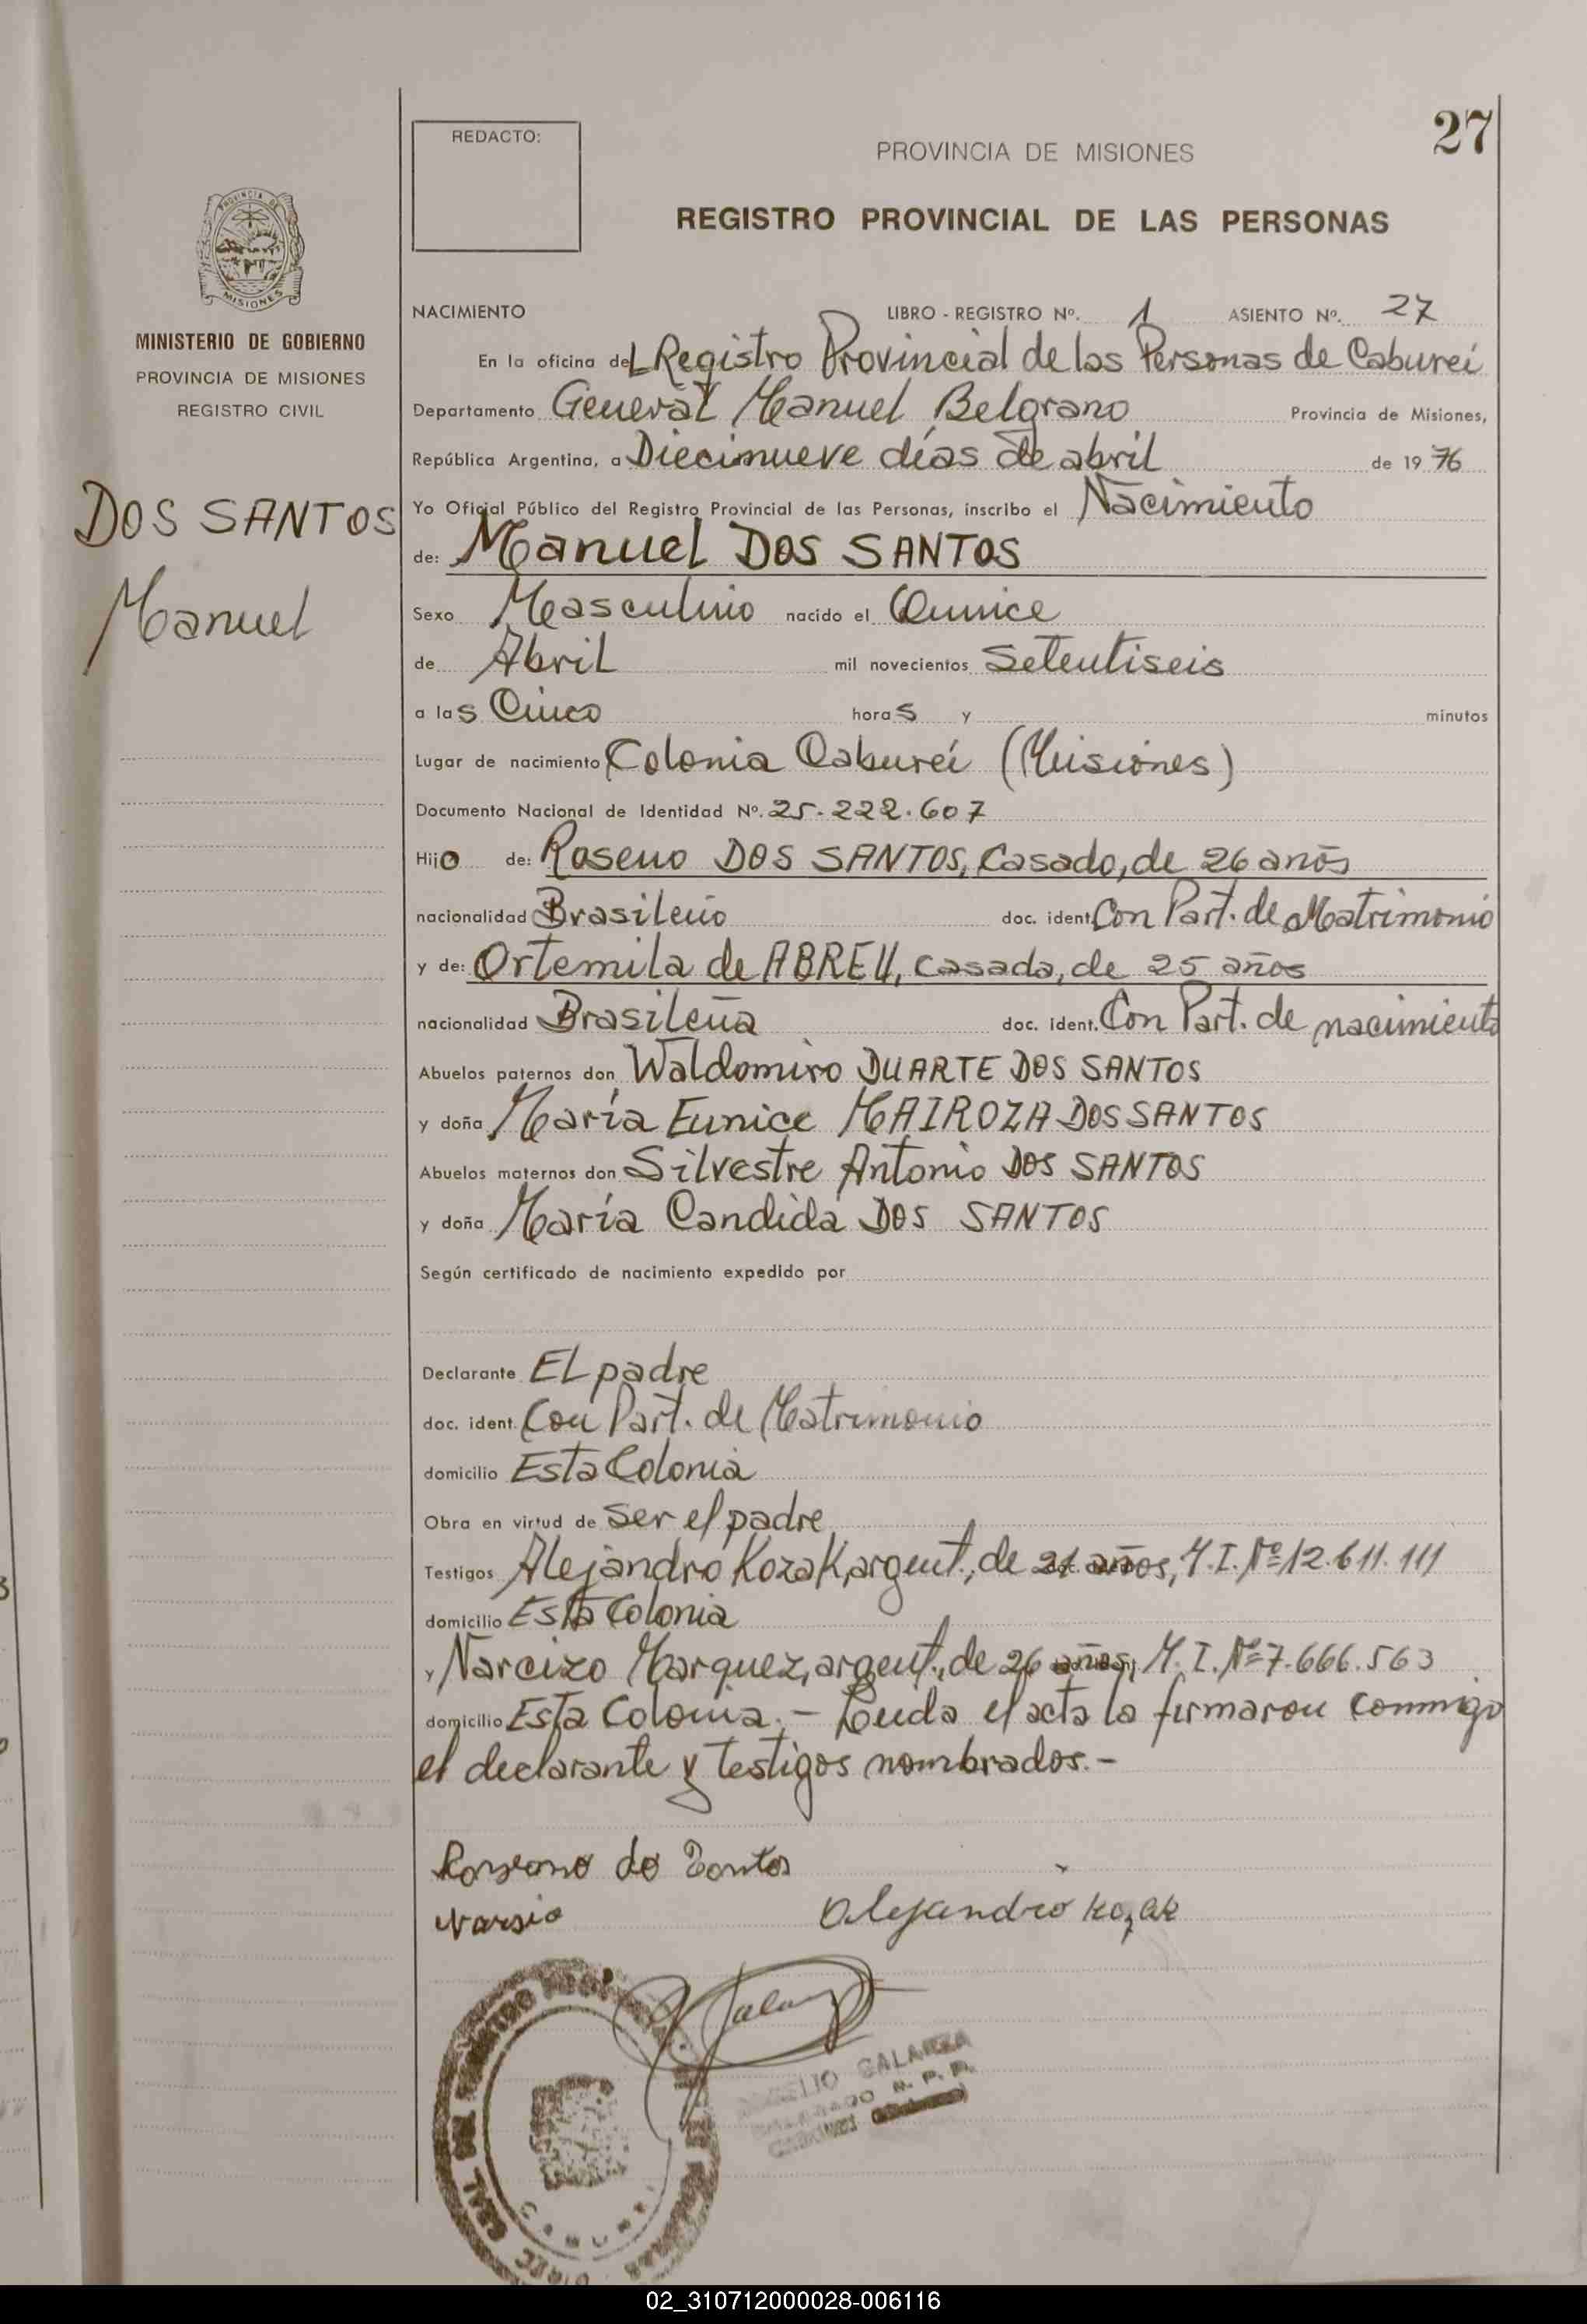 27
REDACTO:
PROVINCIA DE MISIONES
REGISTRO PROVINCIAL DE LAS PERSONAS
PROVINCIA DE
MISIONES
MINISTERIO DE GOBIERNO
PROVINCIA DE MISIONES
REGISTRO CIVIL
DOS SANTOS
Manuel
NACIMIENTO LIBRO - REGISTRO Nº. 1 ASIENTO Nº. 27
En la oficina del Registro Provincial de las Personas de Caburei
Departamento General Manuel Belgrano Provincia de Misiones,
República Argentina, a Diecinueve días de abril de 19 76
Yo Oficial Público del Registro Provincial de las Personas, inscribo el Nacimiento
de: Manuel DOS SANTOS
Sexo Masculino nacido el Quince
de Abril mil novecientos Setentiseis
a las Cinco horas y minutos
Lugar de nacimiento Colonia Caburei (Misiones)
Documento Nacional de Identidad Nº. 25.222.607
Hijo de: Roseno DOS SANTOS, Casado, de 26 años
nacionalidad Brasileño doc. ident. Con Part. de Matrimonio
y de: Ortemila de ABREU, casada, de 25 años
nacionalidad Brasileña doc. ident. Con Part. de nacimiento
Abuelos paternos don Waldomiro DUARTE DOS SANTOS
y doña María Eunice MAIROZA DOS SANTOS
Abuelos maternos don Silvestre Antonio DOS SANTOS
y doña María Candida DOS SANTOS
Según certificado de nacimiento expedido por
Declarante El padre
doc. ident. Con Part. de Matrimonio
domicilio Esta Colonia
Obra en virtud de ser el padre
Testigos Alejandro Kozak, argent., de 21 años, M.I. Nº 12.611.111
domicilio Esta Colonia
y Narcizo Marquez, argent., de 26 años, M.I. Nº 7.666.563
domicilio Esta Colonia.- Leida el acta la firmaron conmigo
el declarante y testigos nombrados.-
do Santos
Narsio Alejandro Kozak
GALARZA
R. P. P.
02_310712000028-006116